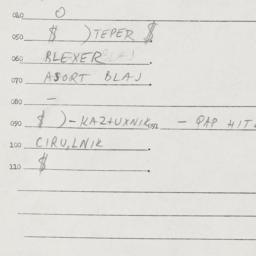 040 O
050 $ )TEPER $
060 BLEXER BLAJ
070 ASORT BLAJ
080 —
090 $ )-KAZ+UXNIK, 092 - QAP HIT
100 CIRU,LNIK
110 $